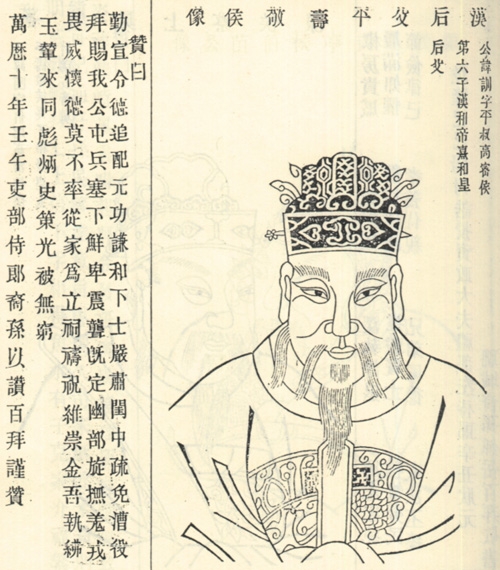 漢后父平壽敬侯像
公諱訓字平叔高密侯
第六子漢和帝熹和皇
后父
贊曰
勤宣令德追配元功謙和下士嚴肅閨中疏免漕役
拜賜我公屯兵塞下鮮卑震聾旣定幽部旋撫羌戎
畏威懷德莫不率從家爲立祠禱祝維崇金吾執紼
玉輦來同彪炳史策光被無窮
萬厯十年壬午吏部侍郎裔孫以讚百拜謹贊